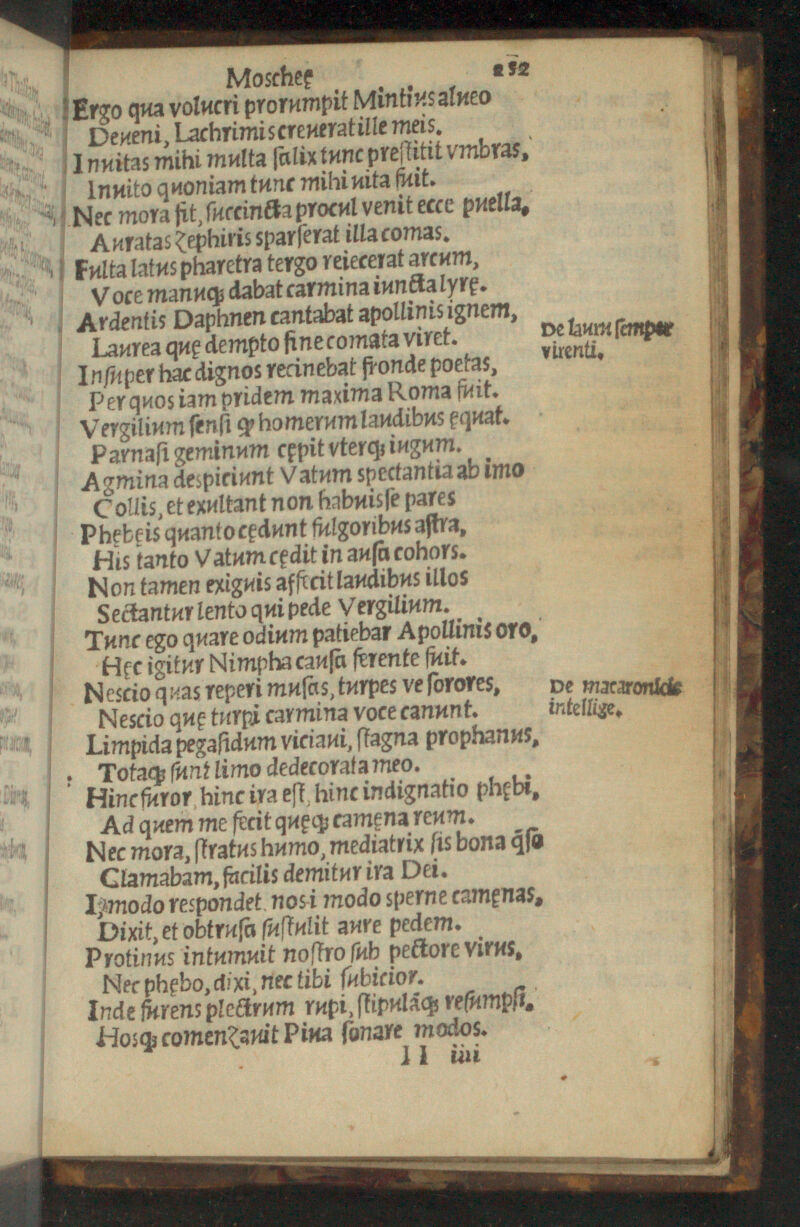 Moscheę 252
Ergo qua volucri prorumpit Mintius alueo
Deueni, Lachrimis creuerat ille meis.
Inuitas mihi multa ſalix tunc preſtitit vmbras,
Inuito quoniam tunc mihi uita fuit.
Nec mora fit, ſuccincta procul venit ecce puella,
Auratas Zephiris sparſerat illa comas.
Fulta latus pharetra tergo reiecerat arcum,
Voce manuq; dabat carmina iuncta lyrę.
Ardentis Daphnen cantabat apollinis ignem,
Laurea quę dempto fine comata viret.
De lauru ſemper
virenti.
Inſuper hac dignos recinebat fronde poetas,
Per quos iam pridem maxima Roma fuit.
Vergilium ſenſi ꝙ homerum laudibus ęquat.
Parnaſi geminum cępit vterq; iugum.
Agmina despiciunt Vatum spectantia ab imo
Collis, et exultant non habuisſe pares
Phębęis quanto cędunt fulgoribus aſtra,
His tanto Vatum cędit in auſa cohors.
Non tamen exiguis affecit laudibus illos
Sectantur lento qui pede Vergilium.
Tunc ego quare odium patiebar Apollinis oro,
Hęc igitur Nimpha cauſa ferente fuit.
Nescio quas reperi muſas, turpes ve ſorores,
Nescio quę turpi carmina voce canunt.
De macaronicis
intellige.
Limpida pegaſidum viciaui, ſtagna prophanus,
Totaq; ſunt limo dedecorata meo.
Hinc furor hinc ira eſt, hinc indignatio phębi,
Ad quem me fecit quęq; camęna reum.
Nec mora, ſtratus humo, mediatrix ſis bona q̃ſo
Clamabam, facilis demitur ira Dei.
I, modo respondet. nos i modo sperne camęnas,
Dixit, et obtruſa ſuſtulit aure pedem.
Protinus intumuit noſtro ſub pectore virus,
Nec phębo, dixi, nec tibi ſubicior.
Inde furens plectrum rupi, ſtipulãq; reſumpſi,
Hosq; comenzauit Piua ſonare modos.
ll iiii